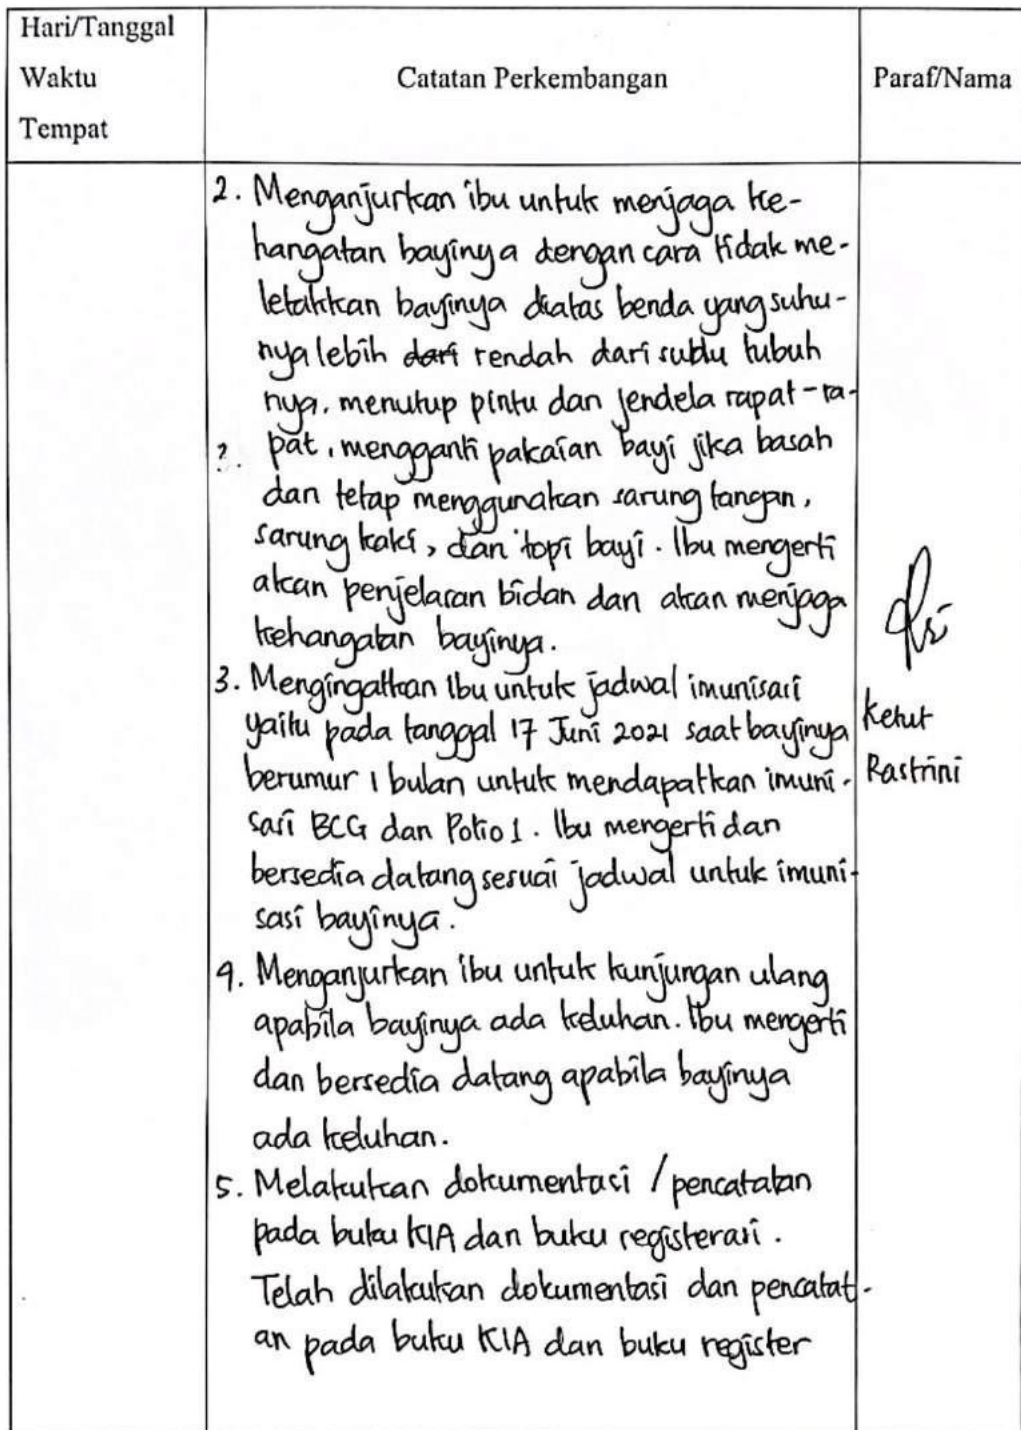 Hari/Tanggal
Waktu
Tempat
Catatan Perkembangan
Paraf/Nama
2. Menganjurkan ibu untuk menjaga ke-
hangatan bayinya dengan cara tidak me-
letakkan bayinya diatas benda yang suhu-
nya lebih dari rendah dari suhu tubuh
nya, menutup pintu dan jendela rapat-ra-
pat, mengganti pakaian bayi jika basah
dan tetap menggunakan sarung tangan,
sarung kaki, dan topi bayi. Ibu mengerti
akan penjelasan bidan dan akan menjaga
kehangatan bayinya.
3. Mengingatkan ibu untuk jadwal imunisasi
yaitu pada tanggal 17 Juni 2021 saat bayinya
berumur 1 bulan untuk mendapatkan imuni-
sasi BCG dan Polio 1. Ibu mengerti dan
bersedia datang sesuai jadwal untuk imuni-
sasi bayinya.
4. Menganjurkan ibu untuk kunjungan ulang
apabila bayinya ada keluhan. Ibu mengerti
dan bersedia datang apabila bayinya
ada keluhan.
5. Melakukan dokumentasi / pencatatan
pada buku KIA dan buku registerasi.
Telah dilakukan dokumentasi dan pencatat-
an pada buku KIA dan buku register
Ketut
Rastrini